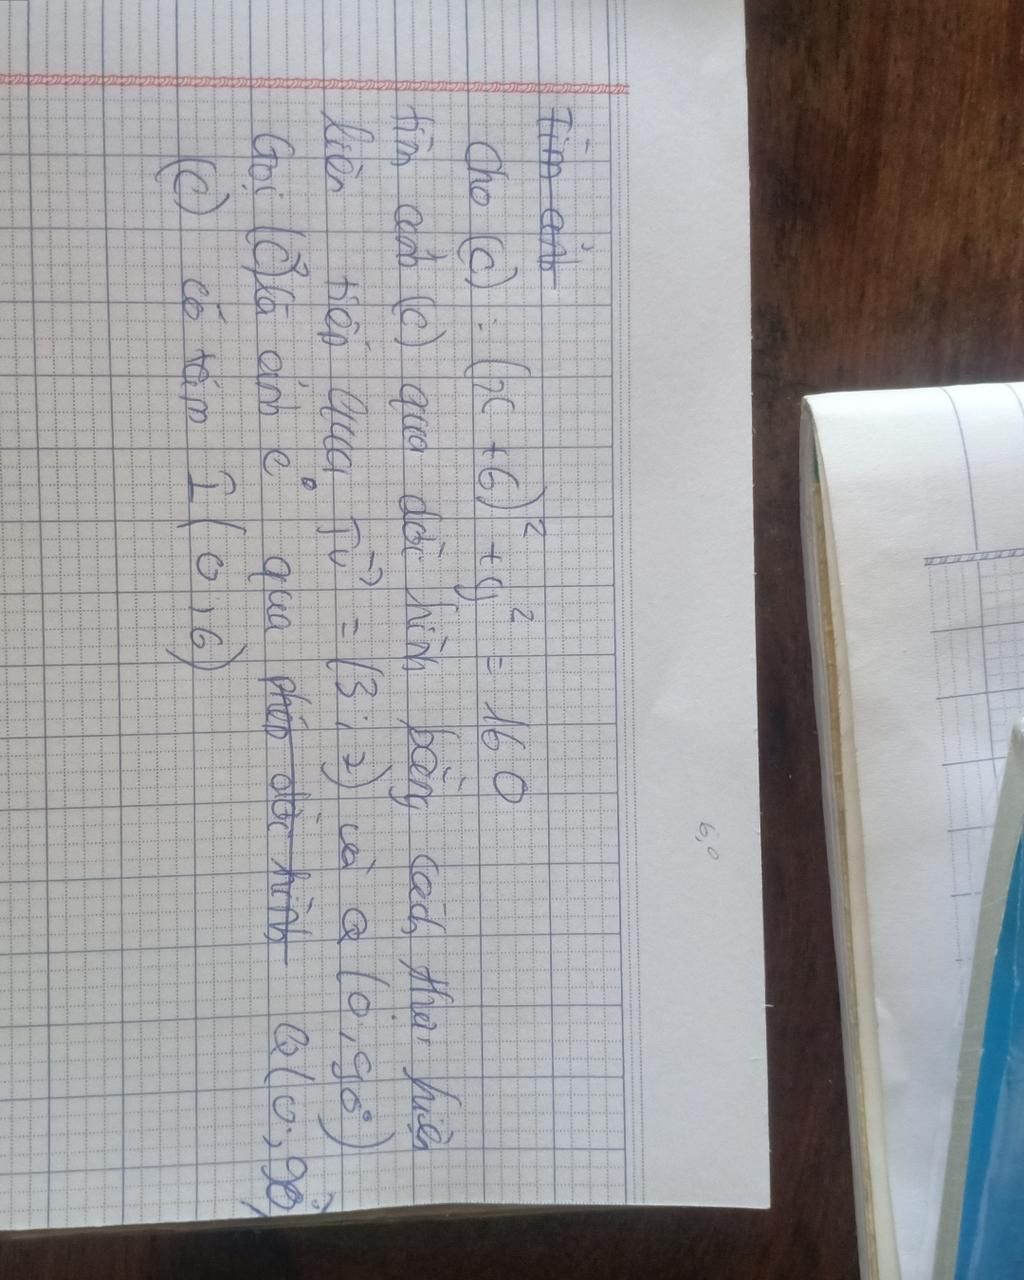 Tìm ảnh
Cho (C) : (x + 6)² + y² = 160
tìm ảnh (C) qua dời hình bằng cách thực hiện
liên tiếp qua Tv⃗ = (3 ; 7) và Q (0, 90°)
Gọi (C') là ảnh C qua phép dời hình Q(0, 90°)
(C) có tâm I (0 ; 6)
6,0